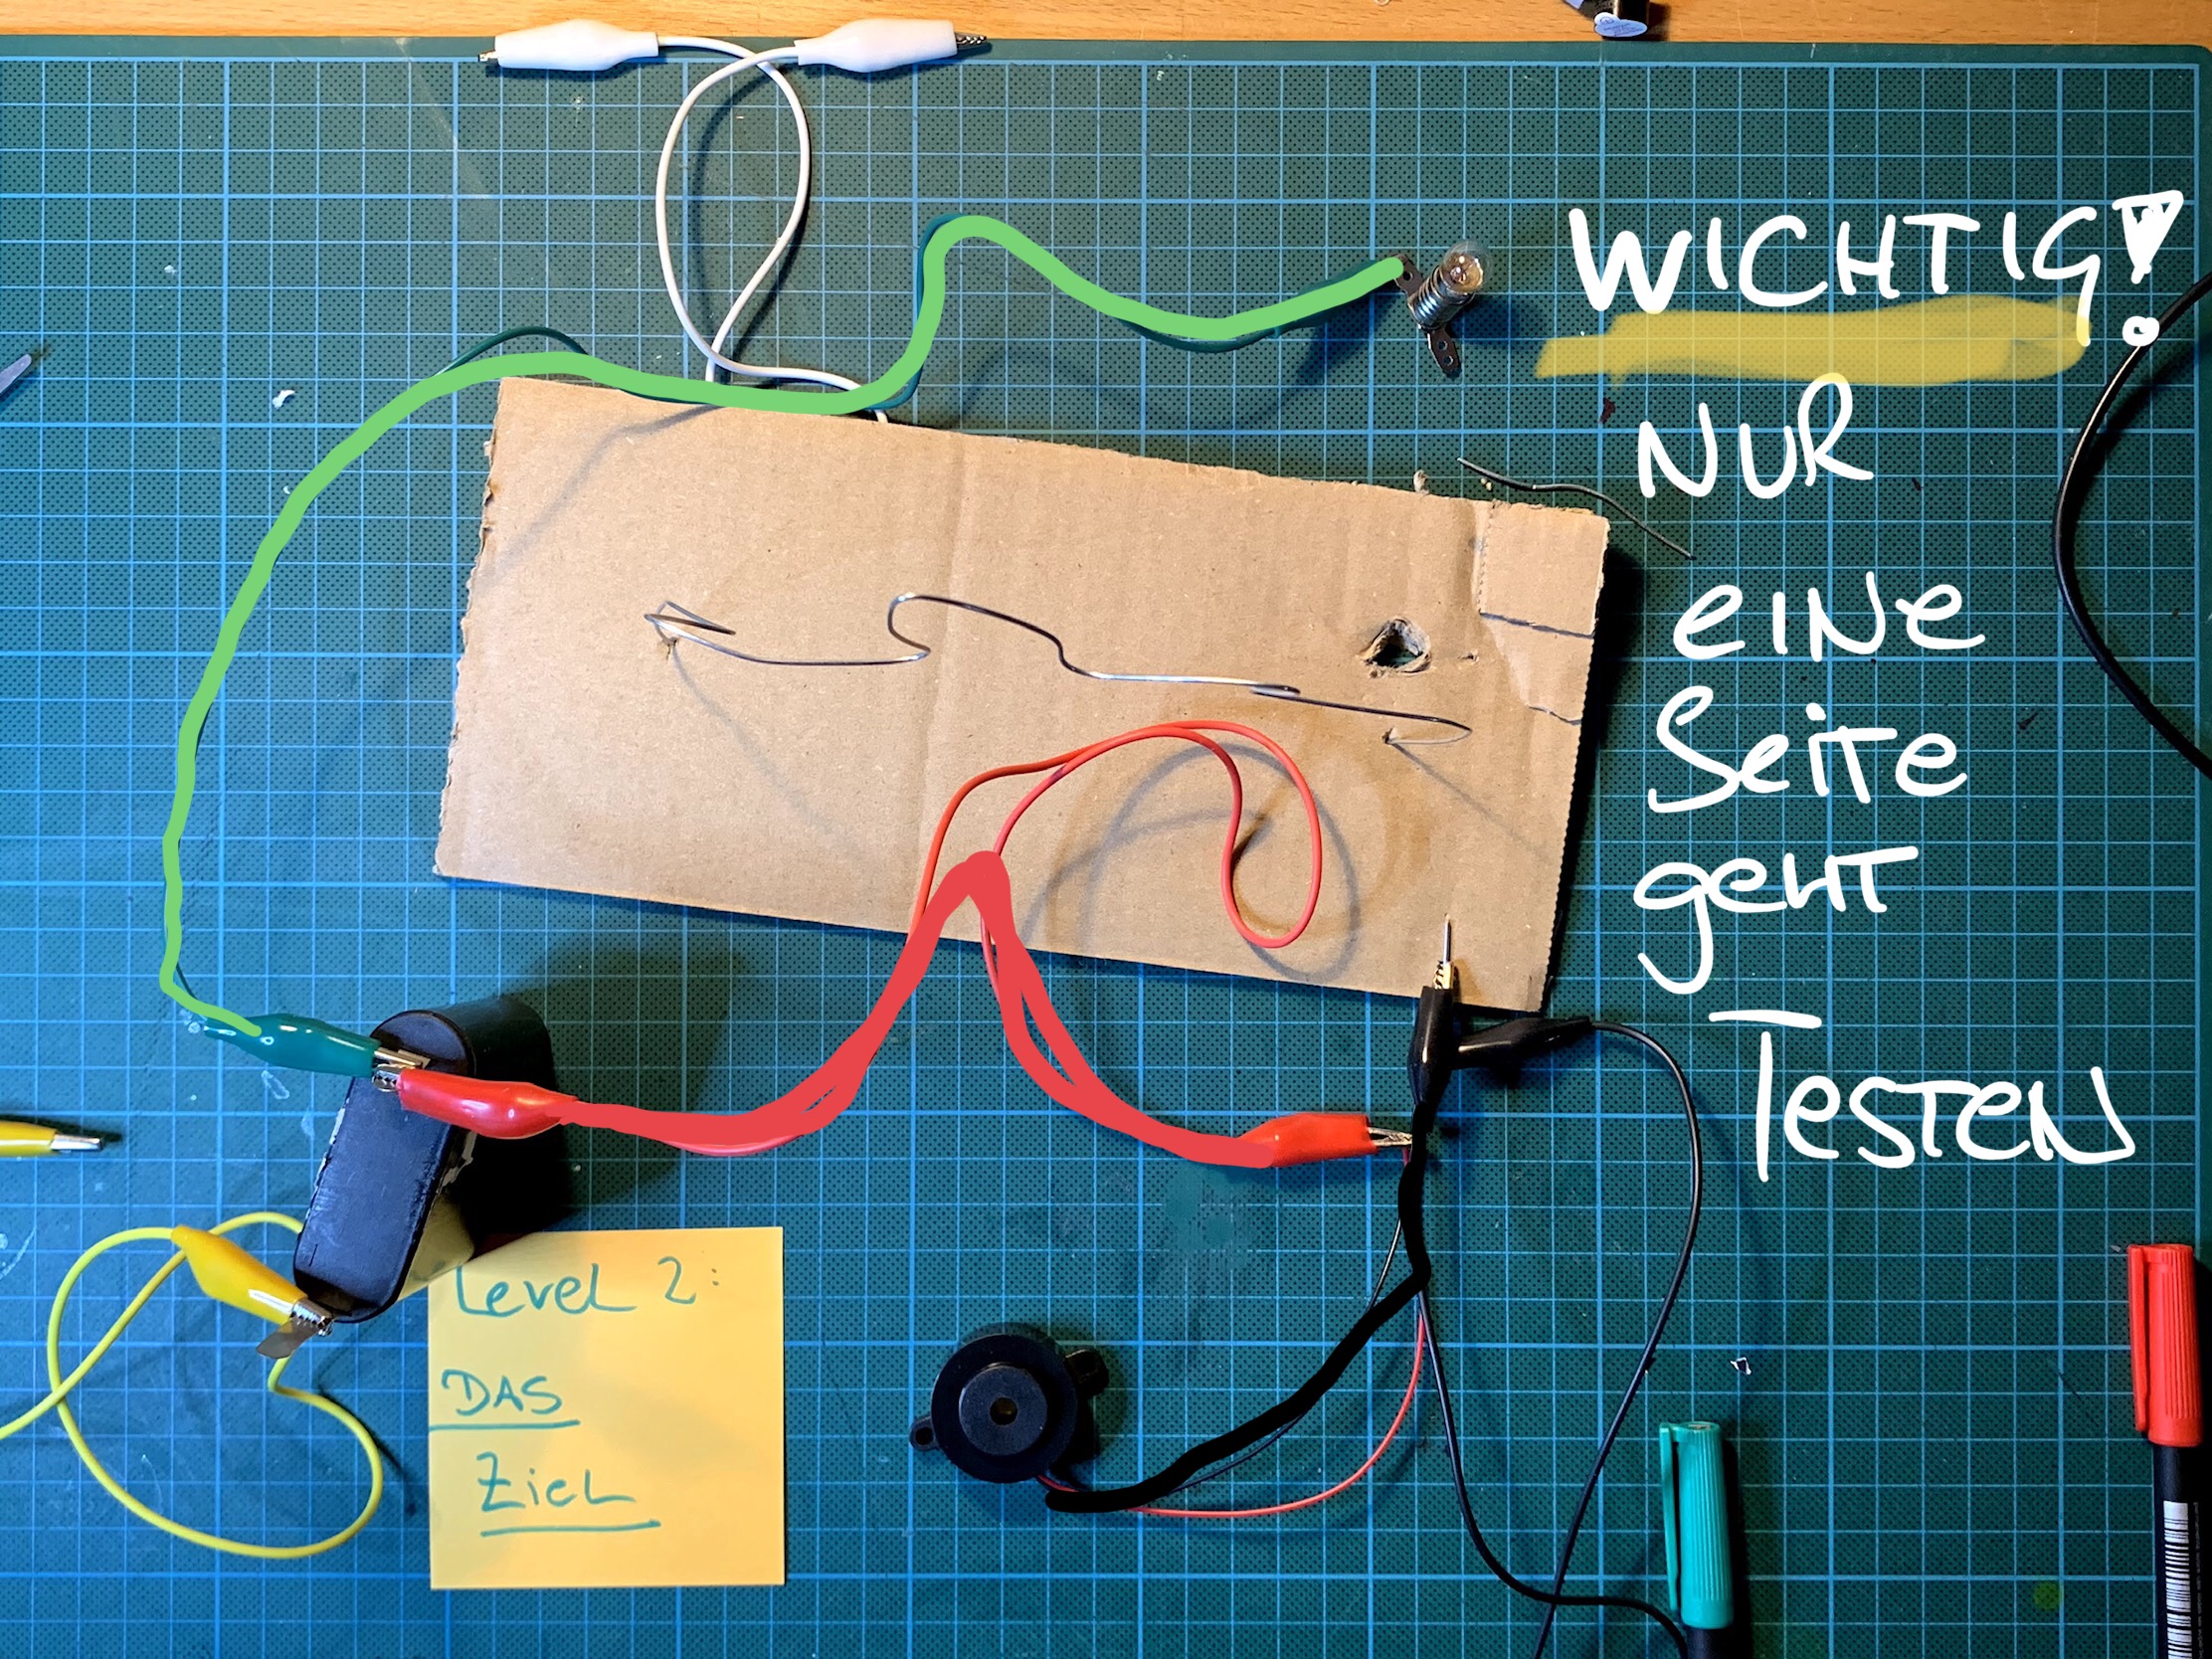 WICHTIG!
NUR
eine
Seite
geht
Testen
Level 2:
DAS
Ziel